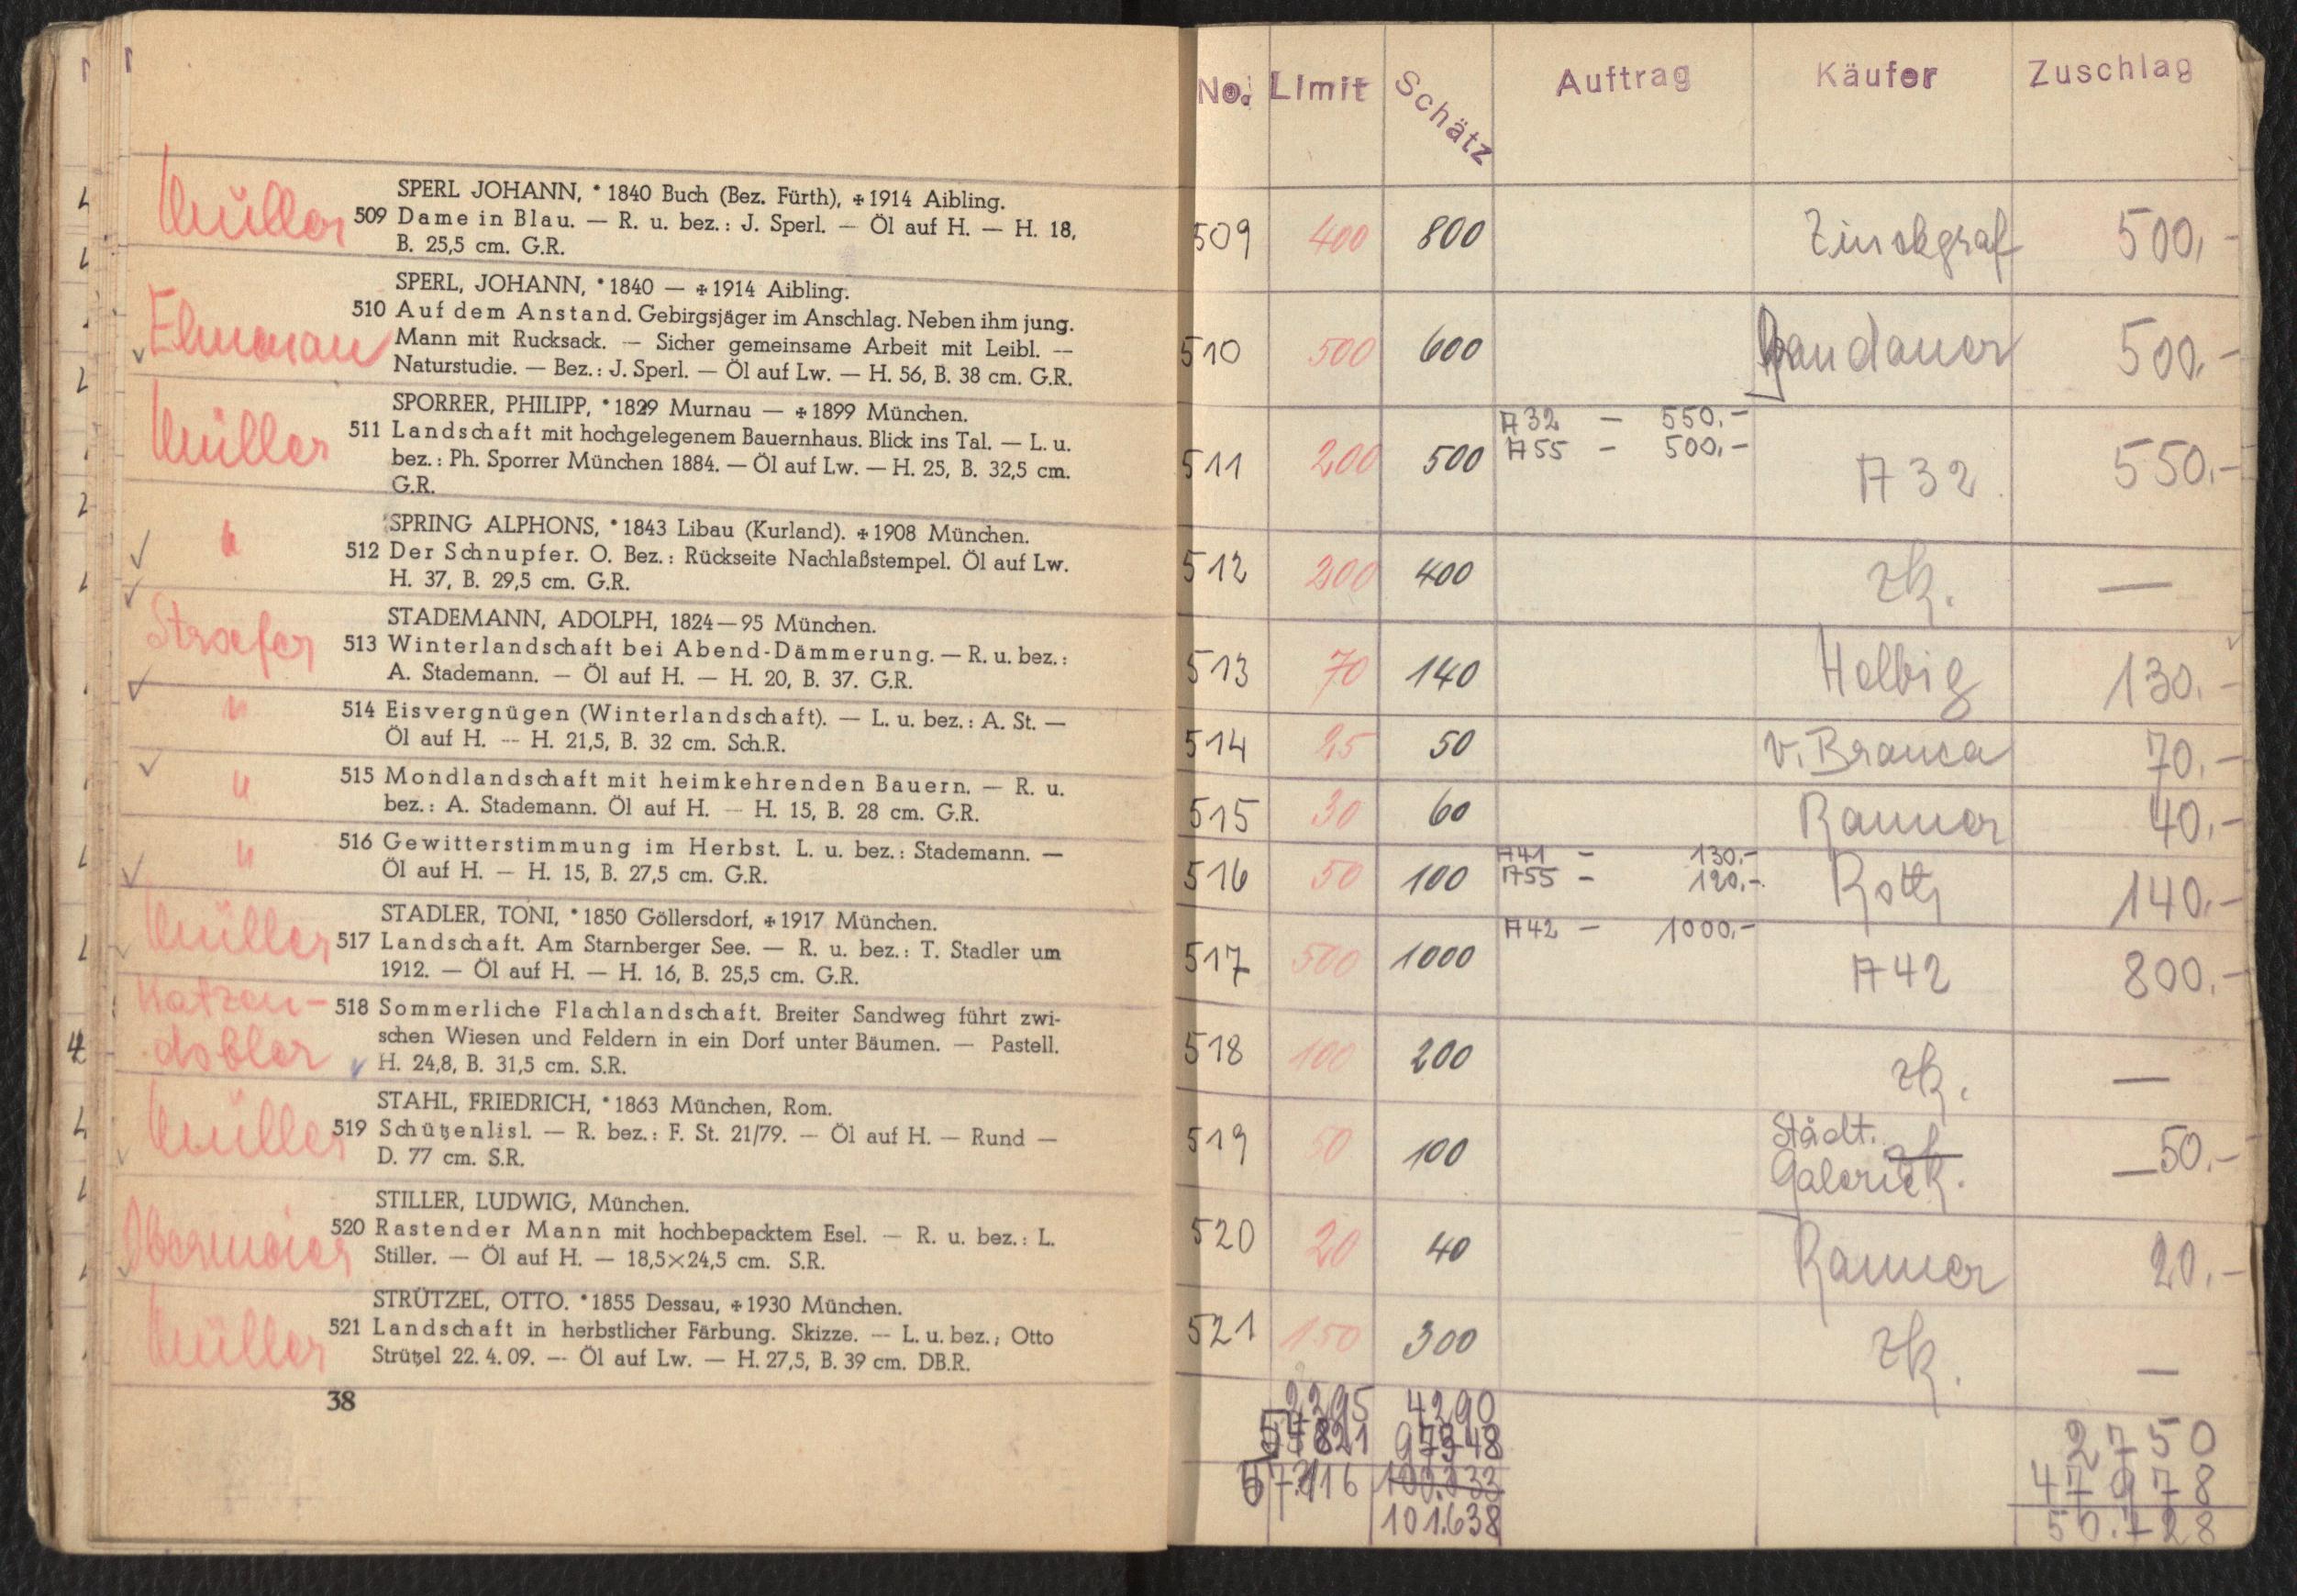 Müller
SPERL JOHANN, * 1840 Buch (Bez. Fürth), ✠ 1914 Aibling.
509 Dame in Blau. — R. u. bez.: J. Sperl. — Öl auf H. — H. 18,
B. 25,5 cm. G.R.
SPERL, JOHANN, * 1840 — ✠ 1914 Aibling.
510 Auf dem Anstand. Gebirgsjäger im Anschlag. Neben ihm jung.
Mann mit Rucksack. — Sicher gemeinsame Arbeit mit Leibl. —
Naturstudie. — Bez.: J. Sperl. — Öl auf Lw. — H. 56, B. 38 cm. G.R.
Müller
SPORRER, PHILIPP, * 1829 Murnau — ✠ 1899 München.
511 Landschaft mit hochgelegenem Bauernhaus. Blick ins Tal. — L. u.
bez.: Ph. Sporrer München 1884. — Öl auf Lw. — H. 25, B. 32,5 cm.
G.R.
"
SPRING ALPHONS, * 1843 Libau (Kurland). ✠ 1908 München.
512 Der Schnupfer. O. Bez.: Rückseite Nachlaßstempel. Öl auf Lw.
H. 37, B. 29,5 cm. G.R.
Stroefer
STADEMANN, ADOLPH, 1824—95 München.
513 Winterlandschaft bei Abend-Dämmerung. — R. u. bez.:
A. Stademann. — Öl auf H. — H. 20, B. 37. G.R.
"
514 Eisvergnügen (Winterlandschaft). — L. u. bez.: A. St. —
Öl auf H. — H. 21,5, B. 32 cm. Sch.R.
"
515 Mondlandschaft mit heimkehrenden Bauern. — R. u.
bez.: A. Stademann. Öl auf H. — H. 15, B. 28 cm. G.R.
"
516 Gewitterstimmung im Herbst. L. u. bez.: Stademann. —
Öl auf H. — H. 15, B. 27,5 cm. G.R.
Müller
STADLER, TONI, * 1850 Göllersdorf, ✠ 1917 München.
517 Landschaft. Am Starnberger See. — R. u. bez.: T. Stadler um
1912. — Öl auf H. — H. 16, B. 25,5 cm. G.R.
Katzen-
dobler
518 Sommerliche Flachlandschaft. Breiter Sandweg führt zwi-
schen Wiesen und Feldern in ein Dorf unter Bäumen. — Pastell.
H. 24,8, B. 31,5 cm. S.R.
Müller
STAHL, FRIEDRICH, * 1863 München, Rom.
519 Schützenlisl. — R. bez.: F. St. 21/79. — Öl auf H. — Rund —
D. 77 cm. S.R.
Obermaier
STILLER, LUDWIG, München.
520 Rastender Mann mit hochbepacktem Esel. — R. u. bez.: L.
Stiller. — Öl auf H. — 18,5×24,5 cm. S.R.
Müller
STRÜTZEL, OTTO. * 1855 Dessau, ✠ 1930 München.
521 Landschaft in herbstlicher Färbung. Skizze. — L. u. bez.; Otto
Strützel 22. 4. 09. — Öl auf Lw. — H. 27,5, B. 39 cm. DB.R.
38
No. Limit Schätz Auftrag Käufer Zuschlag
509 400 800 Zinckgraf 500,-
510 500 600 500,-
A 32 — 550,-
A 55 — 500,-
511 200 500 A 32 550,-
512 200 400 zk. —
513 70 140 Helbig 130,-
514 25 50 v. Branca 70,-
515 30 60 Ranner 40,-
A 41 — 130,-
A 55 — 120,-
516 50 100 Roth 140,-
A 42 — 1000,-
517 500 1000 A 42 800,-
518 100 200 zk. —
519 50 100 Städt. Galerie zk. — 50,-
520 20 40 Ranner 20,-
521 150 300 zk. —
2295 4290 2750
47978
101.638 50.728